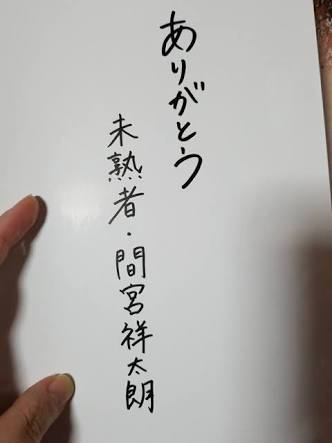 ありがとう
未熟者・間宮祥太朗